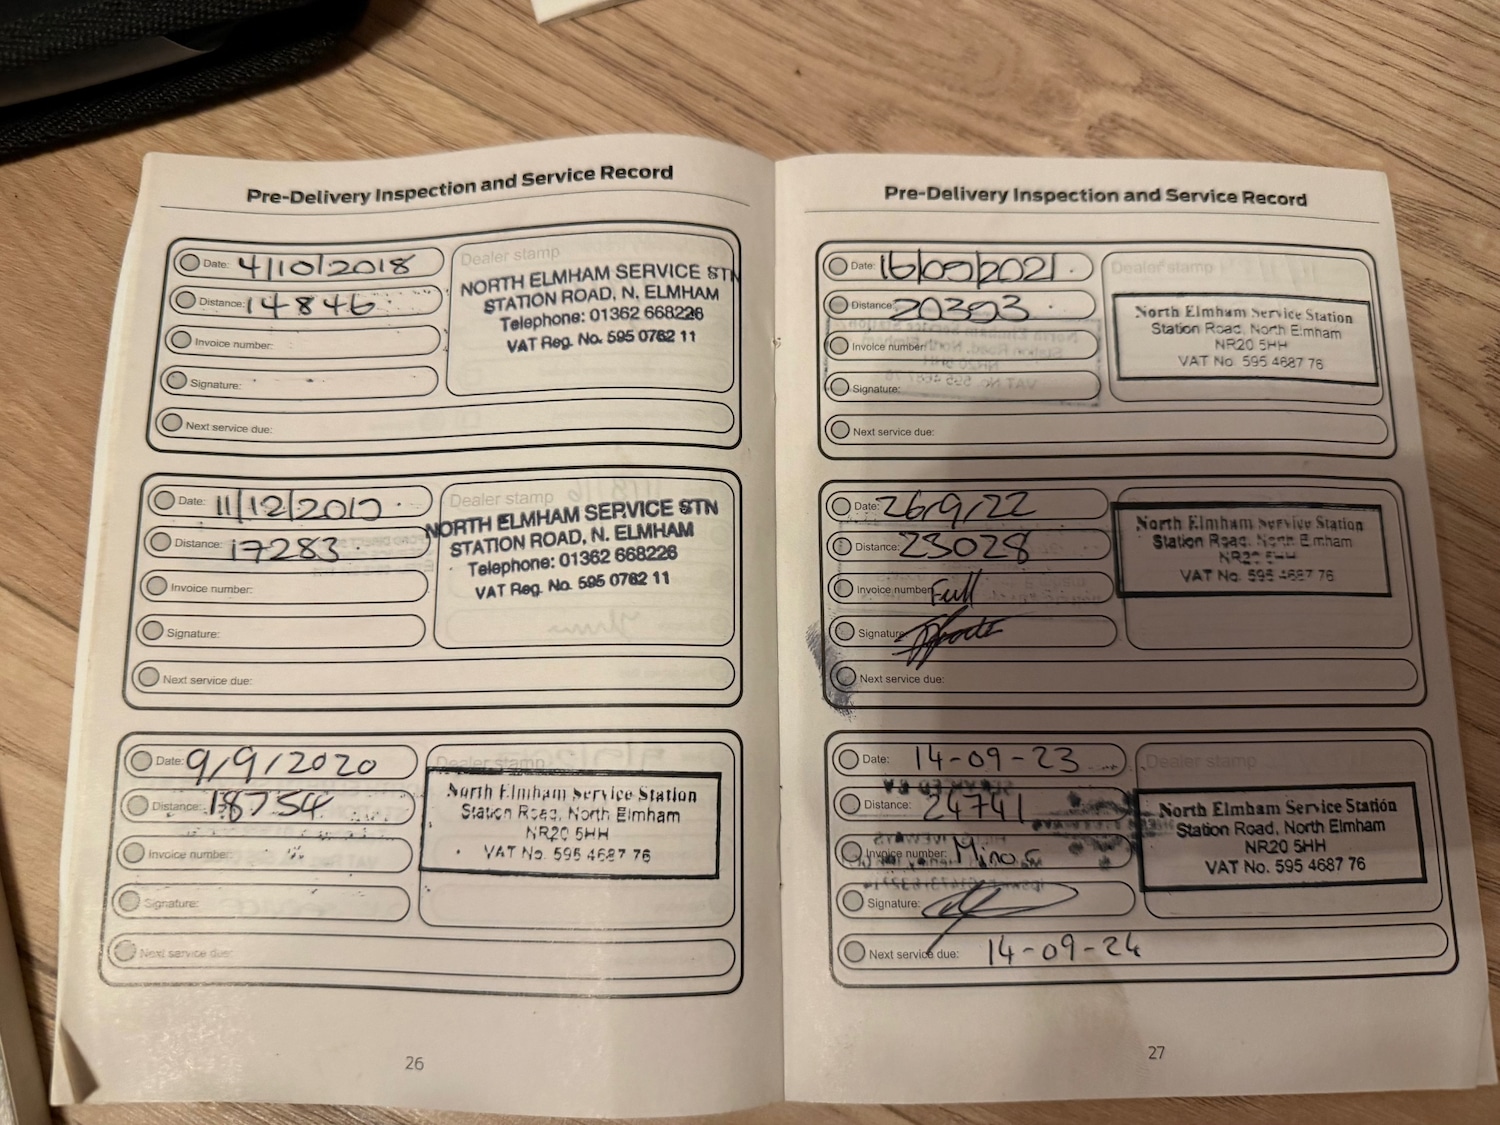 Pre-Delivery Inspection and Service Record
Date: 4/10/2018
Distance: 14846
Invoice number:
Signature:
Next service due:
Dealer stamp
NORTH ELMHAM SERVICE STN
STATION ROAD, N. ELMHAM
Telephone: 01362 668226
VAT Reg. No. 595 0762 11
Date: 11/12/2019
Distance: 17283
Invoice number:
Signature:
Next service due:
Dealer stamp
NORTH ELMHAM SERVICE STN
STATION ROAD, N. ELMHAM
Telephone: 01362 668226
VAT Reg. No. 595 0762 11
Date: 9/9/2020
Distance: 18754
Invoice number:
Signature:
Next service due:
Dealer stamp
North Elmham Service Station
Station Road, North Elmham
NR20 5HH
VAT No. 595 4687 76
26
Pre-Delivery Inspection and Service Record
Date: 16/09/2021
Distance: 20303
Invoice number:
Signature:
Next service due:
Dealer stamp
North Elmham Service Station
Station Road, North Elmham
NR20 5HH
VAT No. 595 4687 76
Date: 26/9/22
Distance: 23028
Invoice number: Full
Signature:
Next service due:
North Elmham Service Station
Station Road, North Elmham
NR20 5HH
VAT No. 595 4687 76
Date: 14-09-23
Distance: 24741
Invoice number: Minor
Signature:
Next service due: 14-09-24
Dealer stamp
North Elmham Service Station
Station Road, North Elmham
NR20 5HH
VAT No. 595 4687 76
27